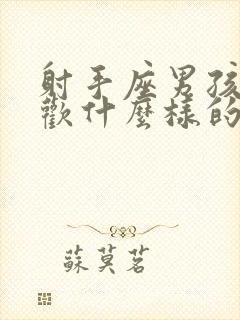 射手座男孩
歡什麼樣的
蘇莫茗